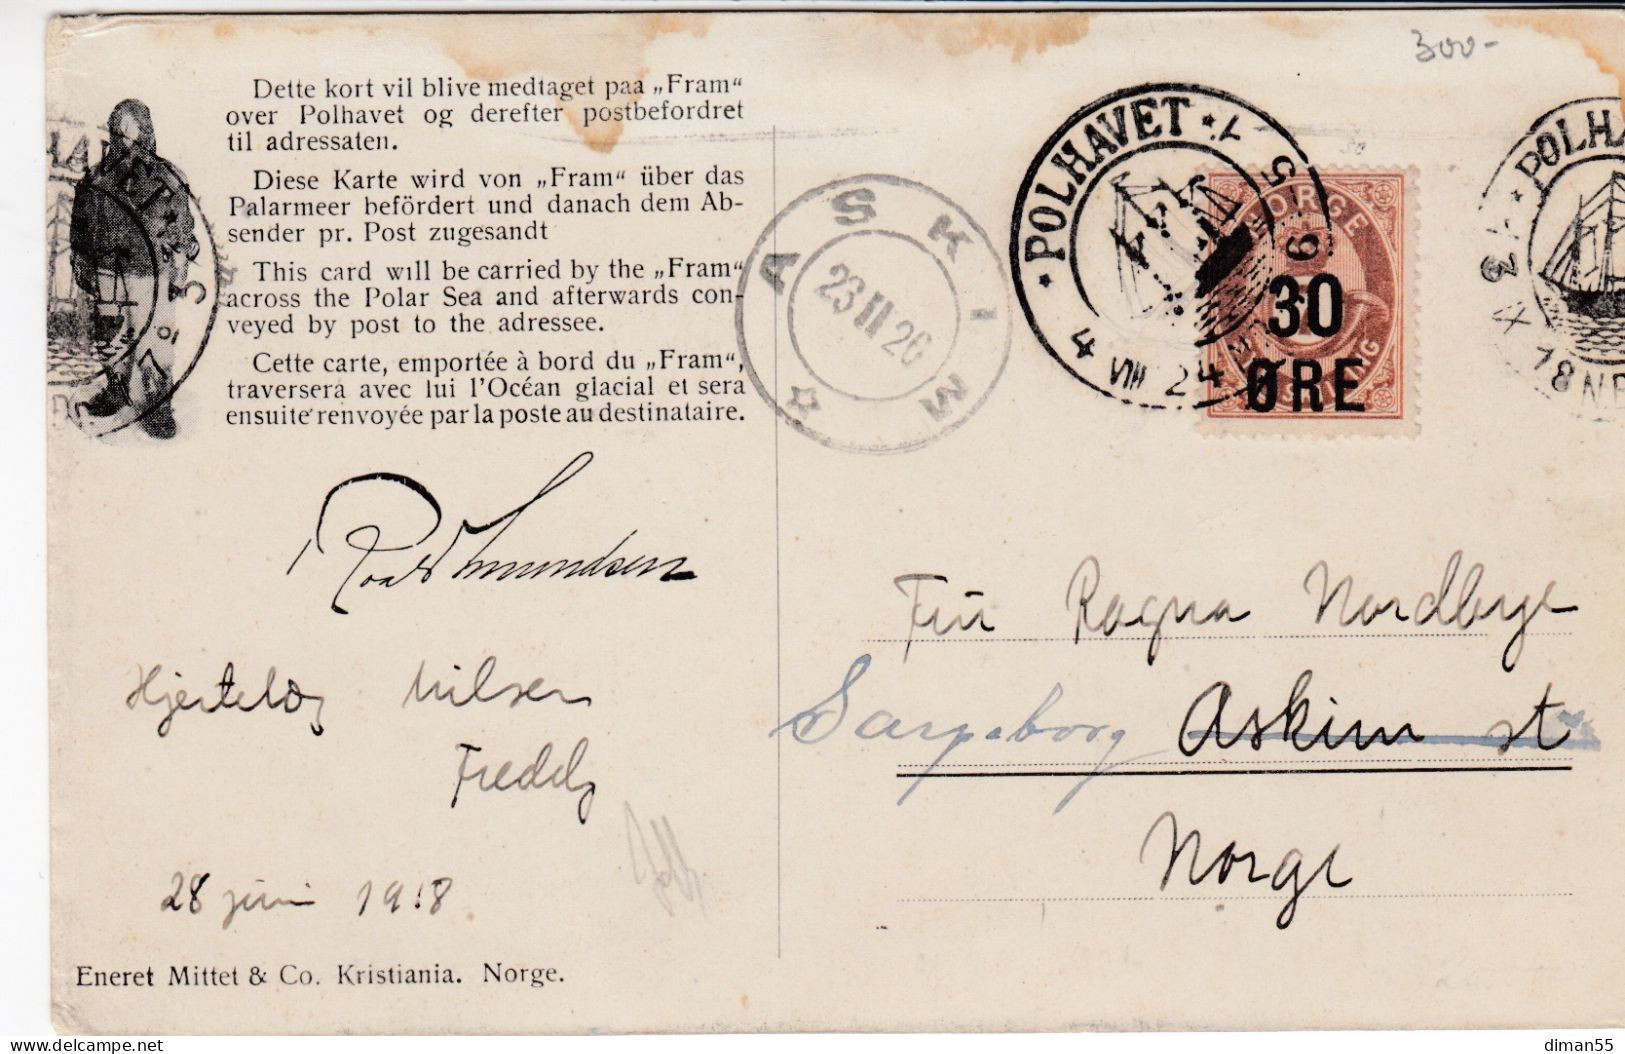 300-
Dette kort vil blive medtaget paa „Fram“
over Polhavet og derefter postbefordret
til adressaten.
Diese Karte wird von „Fram“ über das
Palarmeer befördert und danach dem Ab-
sender pr. Post zugesandt
This card will be carried by the „Fram“
across the Polar Sea and afterwards con-
veyed by post to the adressee.
Cette carte, emportée à bord du „Fram“,
traversera avec lui l'Océan glacial et sera
ensuite renvoyée par la poste au destinataire.
ASKIM
23 II 26
POLHAVET
4 VIII 24
NORGE
30
ØRE
POLHA
Roald Amundsen
Hjertelig hilsen
Freddy
28 juni 1918
Eneret Mittet & Co. Kristiania. Norge.
Ragna Nordbye
Sarpsborg Askim st
Norge
diman55